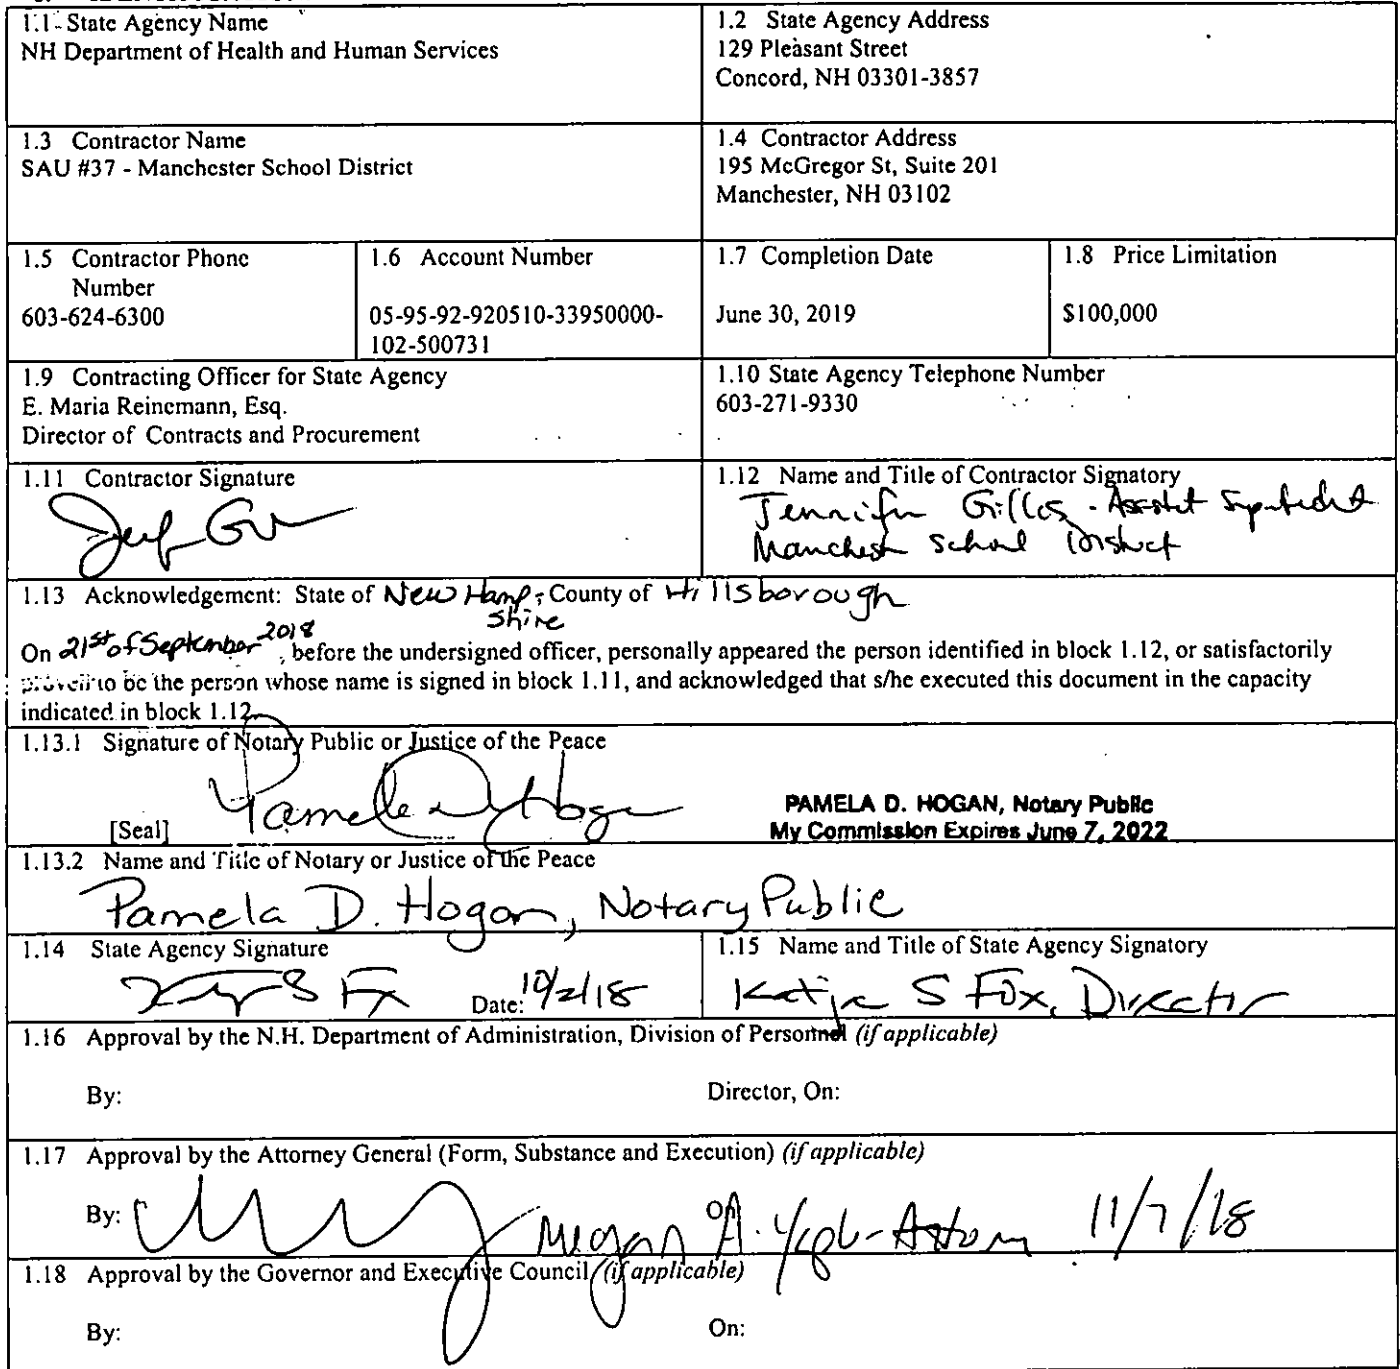 1.1 State Agency Name
NH Department of Health and Human Services
1.2 State Agency Address
129 Pleasant Street
Concord, NH 03301-3857
1.3 Contractor Name
SAU #37 - Manchester School District
1.4 Contractor Address
195 McGregor St, Suite 201
Manchester, NH 03102
1.5 Contractor Phone
Number
603-624-6300
1.6 Account Number
05-95-92-920510-33950000-
102-500731
1.7 Completion Date
June 30, 2019
1.8 Price Limitation
$100,000
1.9 Contracting Officer for State Agency
E. Maria Reinemann, Esq.
Director of Contracts and Procurement
1.10 State Agency Telephone Number
603-271-9330
1.11 Contractor Signature
1.12 Name and Title of Contractor Signatory
Jennifer Gillis -
Manchester School District
1.13 Acknowledgement: State of New Hampshire, County of Hillsborough
On 21st of September 2018, before the undersigned officer, personally appeared the person identified in block 1.12, or satisfactorily
proven to be the person whose name is signed in block 1.11, and acknowledged that s/he executed this document in the capacity
indicated in block 1.12.
1.13.1 Signature of Notary Public or Justice of the Peace
Pamela D Hogan
[Seal]
PAMELA D. HOGAN, Notary Public
My Commission Expires June 7, 2022
1.13.2 Name and Title of Notary or Justice of the Peace
Pamela D. Hogan, Notary Public
1.14 State Agency Signature
Date: 10/2/18
1.15 Name and Title of State Agency Signatory
Katja S Fox, Director
1.16 Approval by the N.H. Department of Administration, Division of Personnel (if applicable)
By:
Director, On:
1.17 Approval by the Attorney General (Form, Substance and Execution) (if applicable)
By:
Megan A.
On:
11/7/18
1.18 Approval by the Governor and Executive Council (if applicable)
By:
On: